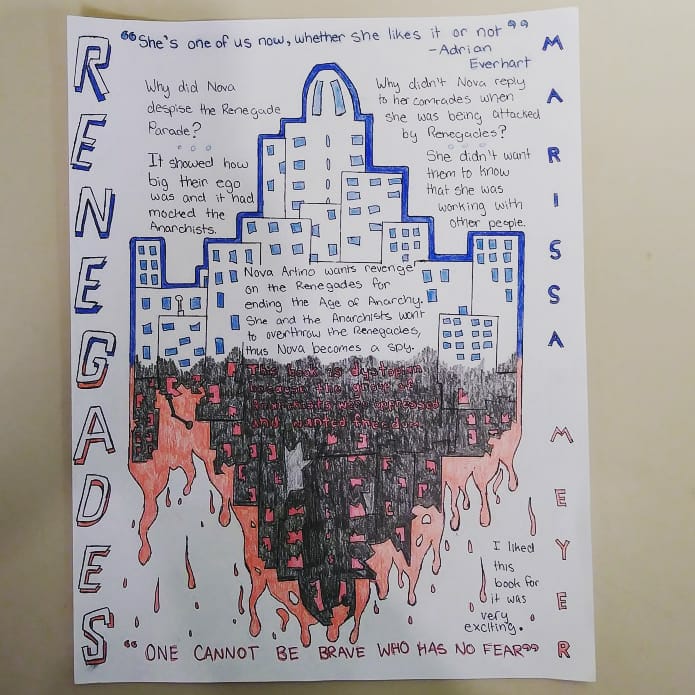 "She's one of us now, whether she likes it or not"
-Adrian
Everhart
RENEGADES
MARISSA MEYER
Why did Nova
despise the Renegade
Parade?
It showed how
big their ego
was and it had
mocked the
Anarchists.
Why didn't Nova reply
to her comrades when
she was being attacked
by Renegades?
She didn't want
them to know
that she was
working with
other people.
Nova Artino wants revenge
on the Renegades for
ending the Age of Anarchy.
She and the Anarchists want
to overthrow the Renegades,
thus Nova becomes a spy.
This book is dystopian
because the group of
Anarchists were oppressed
and wanted freedom.
I liked
this
book for
it was
very
exciting.
"ONE CANNOT BE BRAVE WHO HAS NO FEAR"